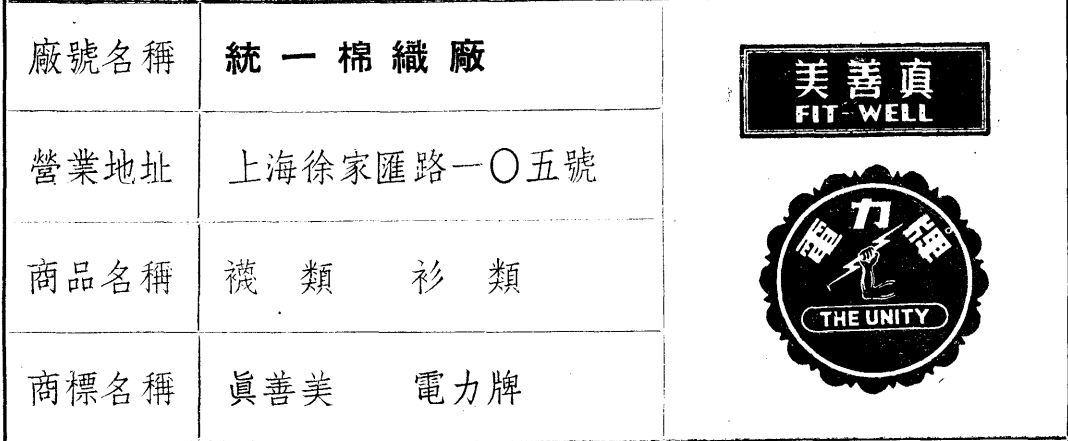 廠號名稱 統一棉織廠
營業地址 上海徐家匯路一〇五號
商品名稱 襪類 衫類
商標名稱 眞善美 電力牌
美善真
FIT-WELL
電力牌
THE UNITY